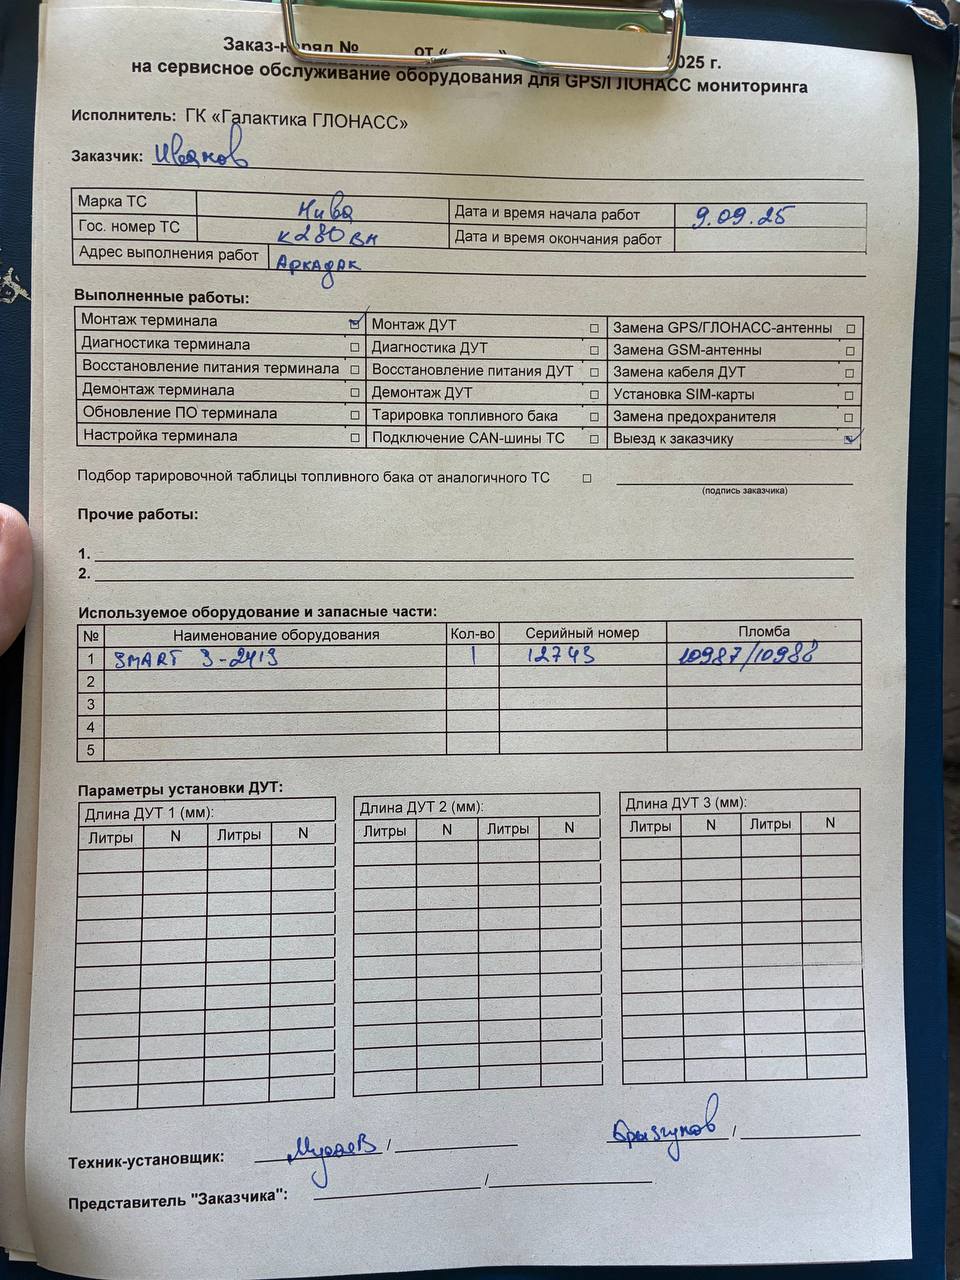 Заказ-наряд № от « » 2025 г.
на сервисное обслуживание оборудования для GPS/ГЛОНАСС мониторинга
Исполнитель: ГК «Галактика ГЛОНАСС»
Заказчик: Иванов
Марка ТС Нива Дата и время начала работ 9.09.25
Гос. номер ТС К280ВН Дата и время окончания работ
Адрес выполнения работ Аркадак
Выполненные работы:
Монтаж терминала ☑ Монтаж ДУТ ☐ Замена GPS/ГЛОНАСС-антенны ☐
Диагностика терминала ☐ Диагностика ДУТ ☐ Замена GSM-антенны ☐
Восстановление питания терминала ☐ Восстановление питания ДУТ ☐ Замена кабеля ДУТ ☐
Демонтаж терминала ☐ Демонтаж ДУТ ☐ Установка SIM-карты ☐
Обновление ПО терминала ☐ Тарировка топливного бака ☐ Замена предохранителя ☐
Настройка терминала ☐ Подключение CAN-шины ТС ☐ Выезд к заказчику ☑
Подбор тарировочной таблицы топливного бака от аналогичного ТС ☐
(подпись заказчика)
Прочие работы:
1.
2.
Используемое оборудование и запасные части:
№ Наименование оборудования Кол-во Серийный номер Пломба
1 SMART S-2413 1 12743 10987/10988
2
3
4
5
Параметры установки ДУТ:
Длина ДУТ 1 (мм): Длина ДУТ 2 (мм): Длина ДУТ 3 (мм):
Литры N Литры N Литры N Литры N Литры N Литры N
Техник-установщик: / Брызгунов /
Представитель "Заказчика": /